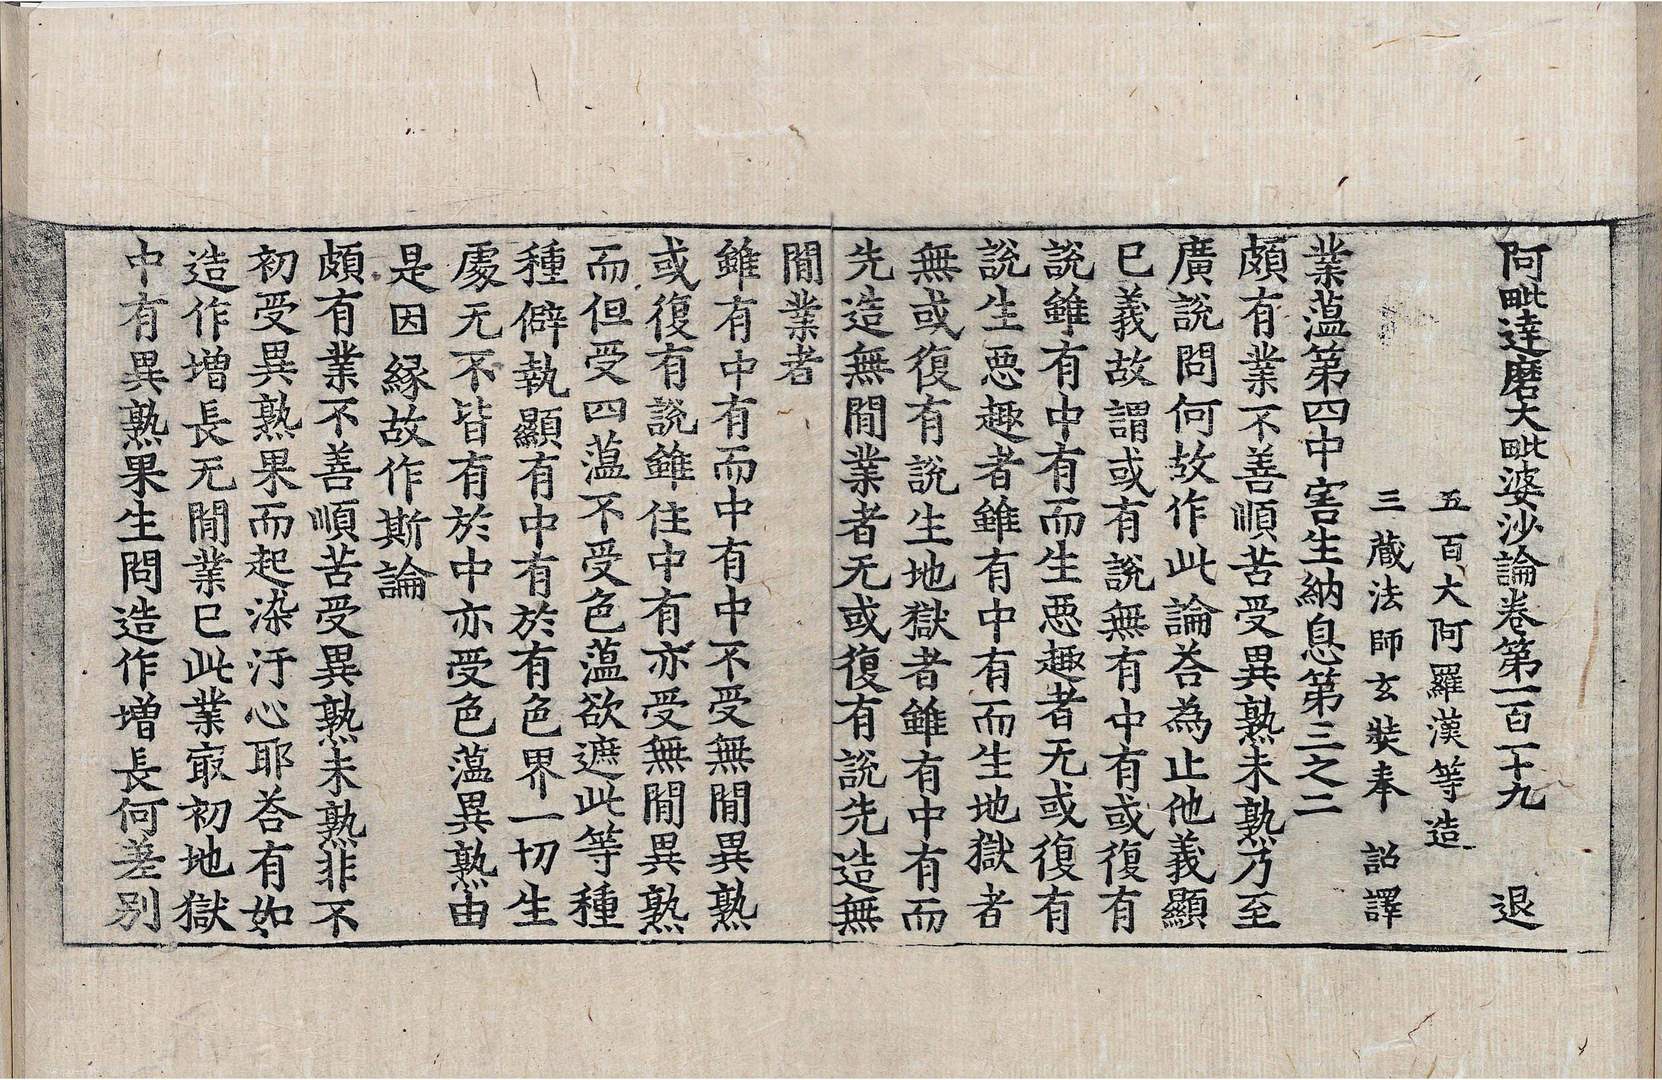 阿毗達磨大毗婆沙論卷第一百一十九 退
五百大阿羅漢等造
三藏法師玄奘奉 詔譯
業蕰第四中害生納息第三之二
頗有業不善順苦受異熟未熟乃至
廣說問何故作此論荅為止他義顯
巳義故謂或有說無有中有或復有
說雖有中有而生惡趣者无或復有
說生惡趣者雖有中有而生地獄者
無或復有說生地獄者雖有中有而
先造無間業者无或復有說先造無
間業者
雖有中有而中有中不受無間異熟
或復有說雖住中有亦受無間異熟
而但受四蕰不受色蕰欲遮此等種
種僻執顯有中有於有色界一切生
處无不皆有於中亦受色蕰異熟由
是因緣故作斯論
頗有業不善順苦受異熟未熟非不
初受異熟果而起染汙心耶荅有如
造作增長无間業巳此業㝡初地獄
中有異熟果生問造作增長何差別